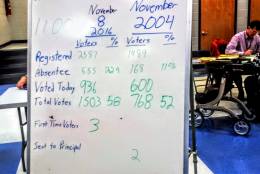 November November
1100 8 2004
2016
Voters % Voters %
Registered 2587 1489
Absentee 555 168
Voted Today 936 600
Total Votes 1503 58 768 52
First Time Voters 3
Sent to Principal
2